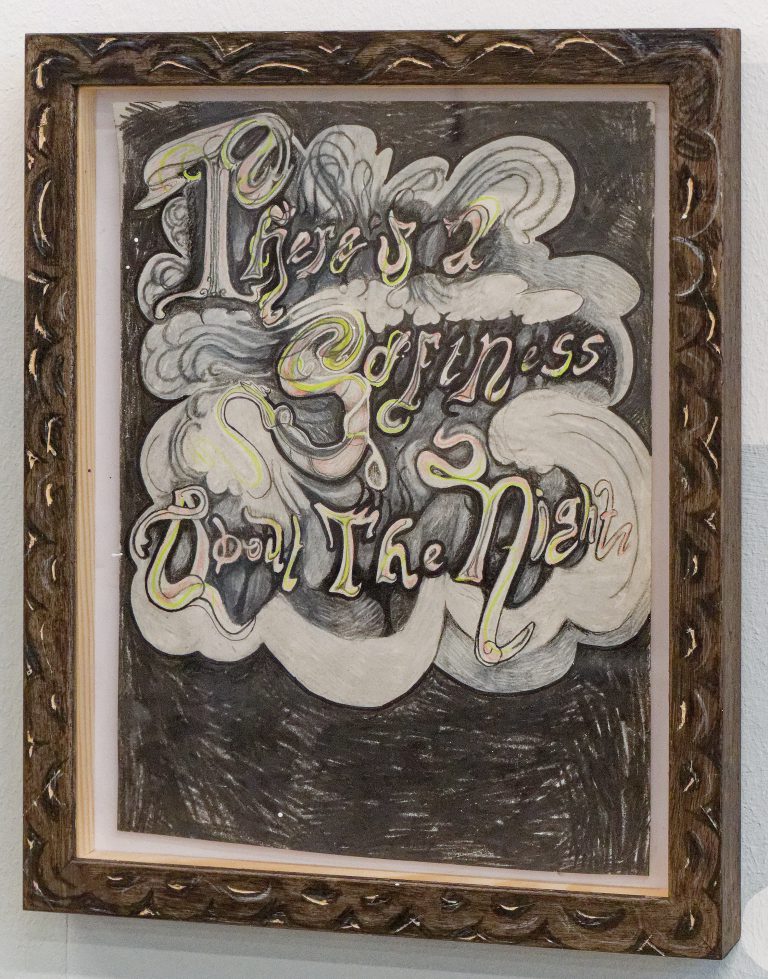 There's a
Softness
About The Night